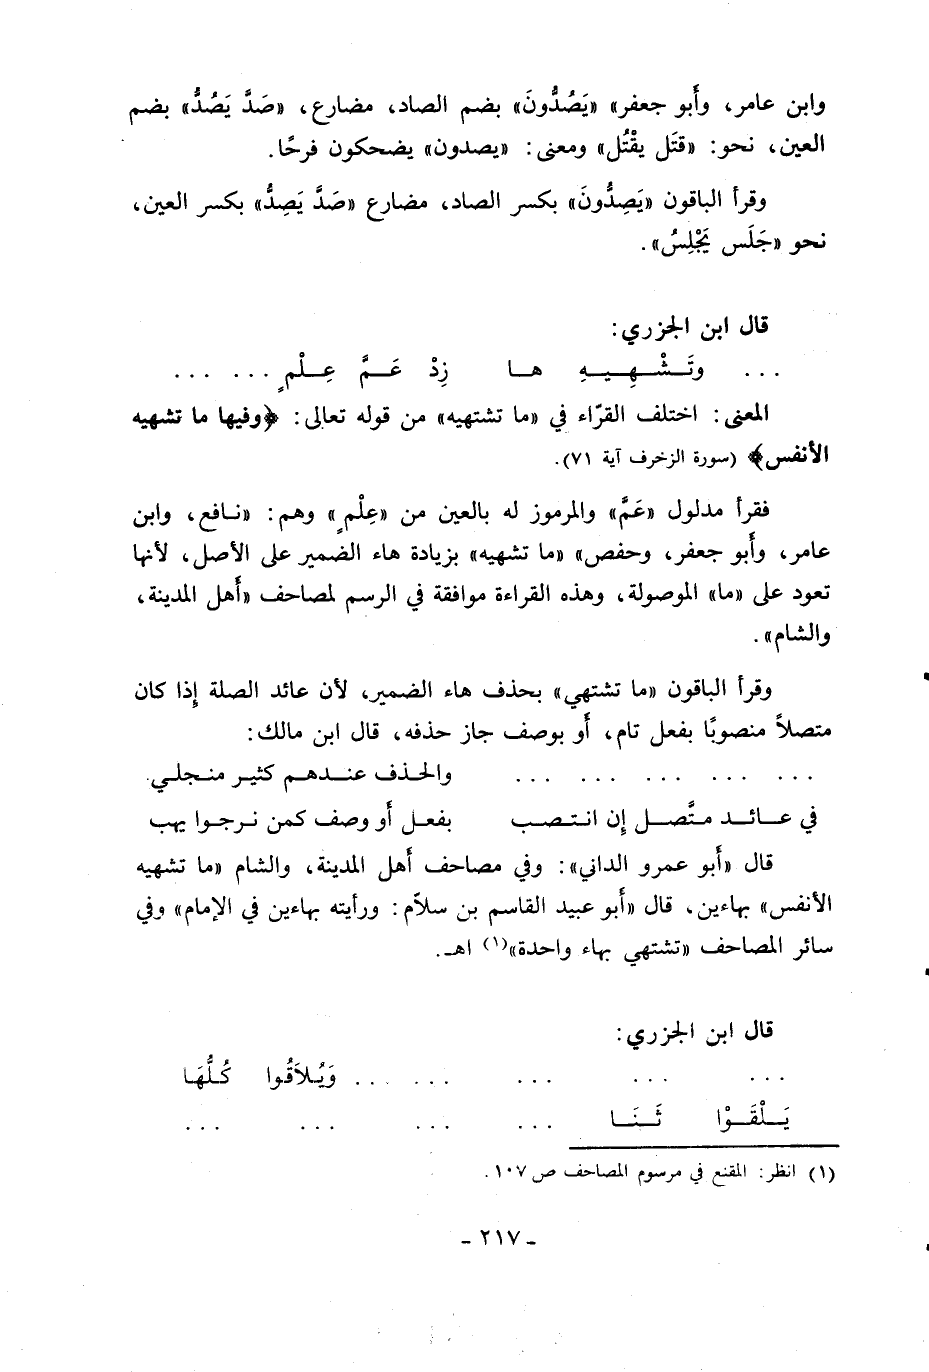 وابن عامر، وأبو جعفر» «يَصُدُّونَ» بضم الصاد، مضارع، «صَدَّ يَصُدُّ» بضم
العين، نحو: «قتَل يقْتُل» ومعنى: «يصدون» يضحكون فرحًا.
وقرأ الباقون «يَصِدُّونَ» بكسر الصاد، مضارع «صَدَّ يَصِدُّ» بكسر العين،
نحو «جَلَس يَجْلِسُ».
قال ابن الجزري:
... وتَشْهِيهِ ها زِدْ عَمَّ عِلْمٍ ... ...
المعنى: اختلف القرّاء في «ما تشتهيه» من قوله تعالى: ﴿وفيها ما تشهيه
الأنفس﴾ (سورة الزخرف آية ٧١).
فقرأ مدلول «عَمَّ» والمرموز له بالعين من «عِلْمٍ» وهم: «نافع، وابن
عامر، وأبو جعفر، وحفص» «ما تشهيه» بزيادة هاء الضمير على الأصل، لأنها
تعود على «ما» الموصولة، وهذه القراءة موافقة في الرسم لمصاحف «أهل المدينة،
والشام».
وقرأ الباقون «ما تشتهي» بحذف هاء الضمير، لأن عائد الصلة إذا كان
متصلاً منصوبًا بفعل تام، أو بوصف جاز حذفه، قال ابن مالك:
... ... ... ... ... والحذف عندهم كثير منجلي.
في عائد متَّصل إن انتصب بفعل أو وصف كمن نرجوا يهب
قال «أبو عمرو الداني»: وفي مصاحف أهل المدينة، والشام «ما تشهيه
الأنفس» بهاءين، قال «أبو عبيد القاسم بن سلاّم: ورأيته بهاءين في الإمام» وفي
سائر المصاحف «تشتهي بهاء واحدة»(١) اهـ.
قال ابن الجزري:
... ... ... ... ... وَيُلاَقُوا كُلُّهَا
يَلْقَوْا ثَنَا ... ... ... ...
(١) انظر: المقنع في مرسوم المصاحف ص ١٠٧.
- ٢١٧ -